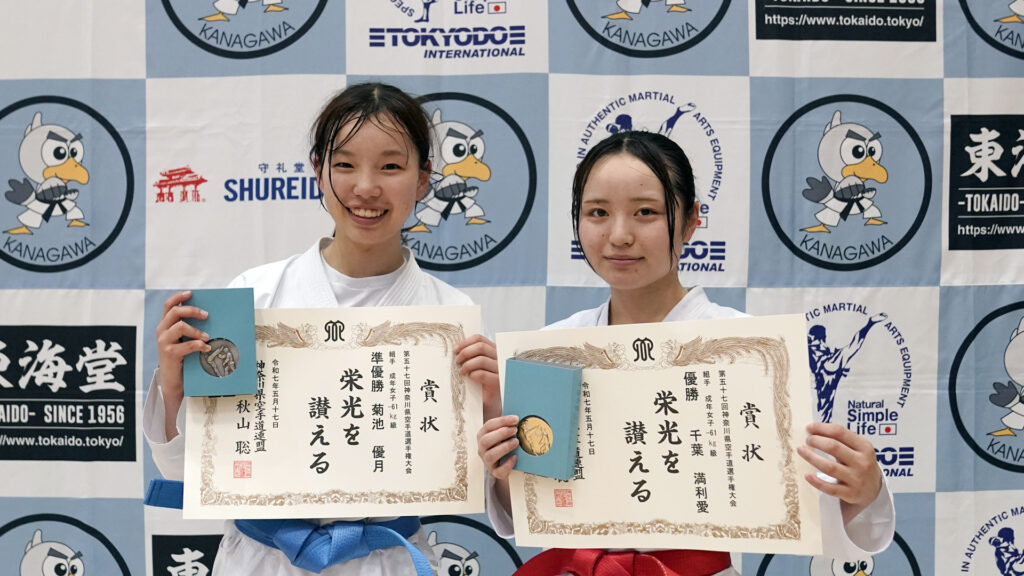 KANAGAWA
Life
TOKYODO
INTERNATIONAL
KANAGAWA
SINCE 1956
https://www.tokaido.tokyo/
KANAGAWA
守礼堂
SHUREID
KANAGAWA
IN AUTHENTIC MARTIAL ARTS EQUIPMENT
INTERNATIONAL
KANAGAWA
東
-TOKAIDO-
https://www.
東海堂
SINCE 1956
www.tokaido.tokyo/
MARTIAL ARTS EQUIPMENT
Natural
Simple
Life
賞状
第五十七回神奈川県空手道選手権大会
組手 成年女子-61kg級
準優勝 菊池 優月
栄光を
讃える
令和七年五月十七日
神奈川県空手道連盟
秋山 聡
賞状
第五十七回神奈川県空手道選手権大会
組手 成年女子-61kg級
優勝 千葉 満利愛
栄光を
讃える
令和七年五月十七日